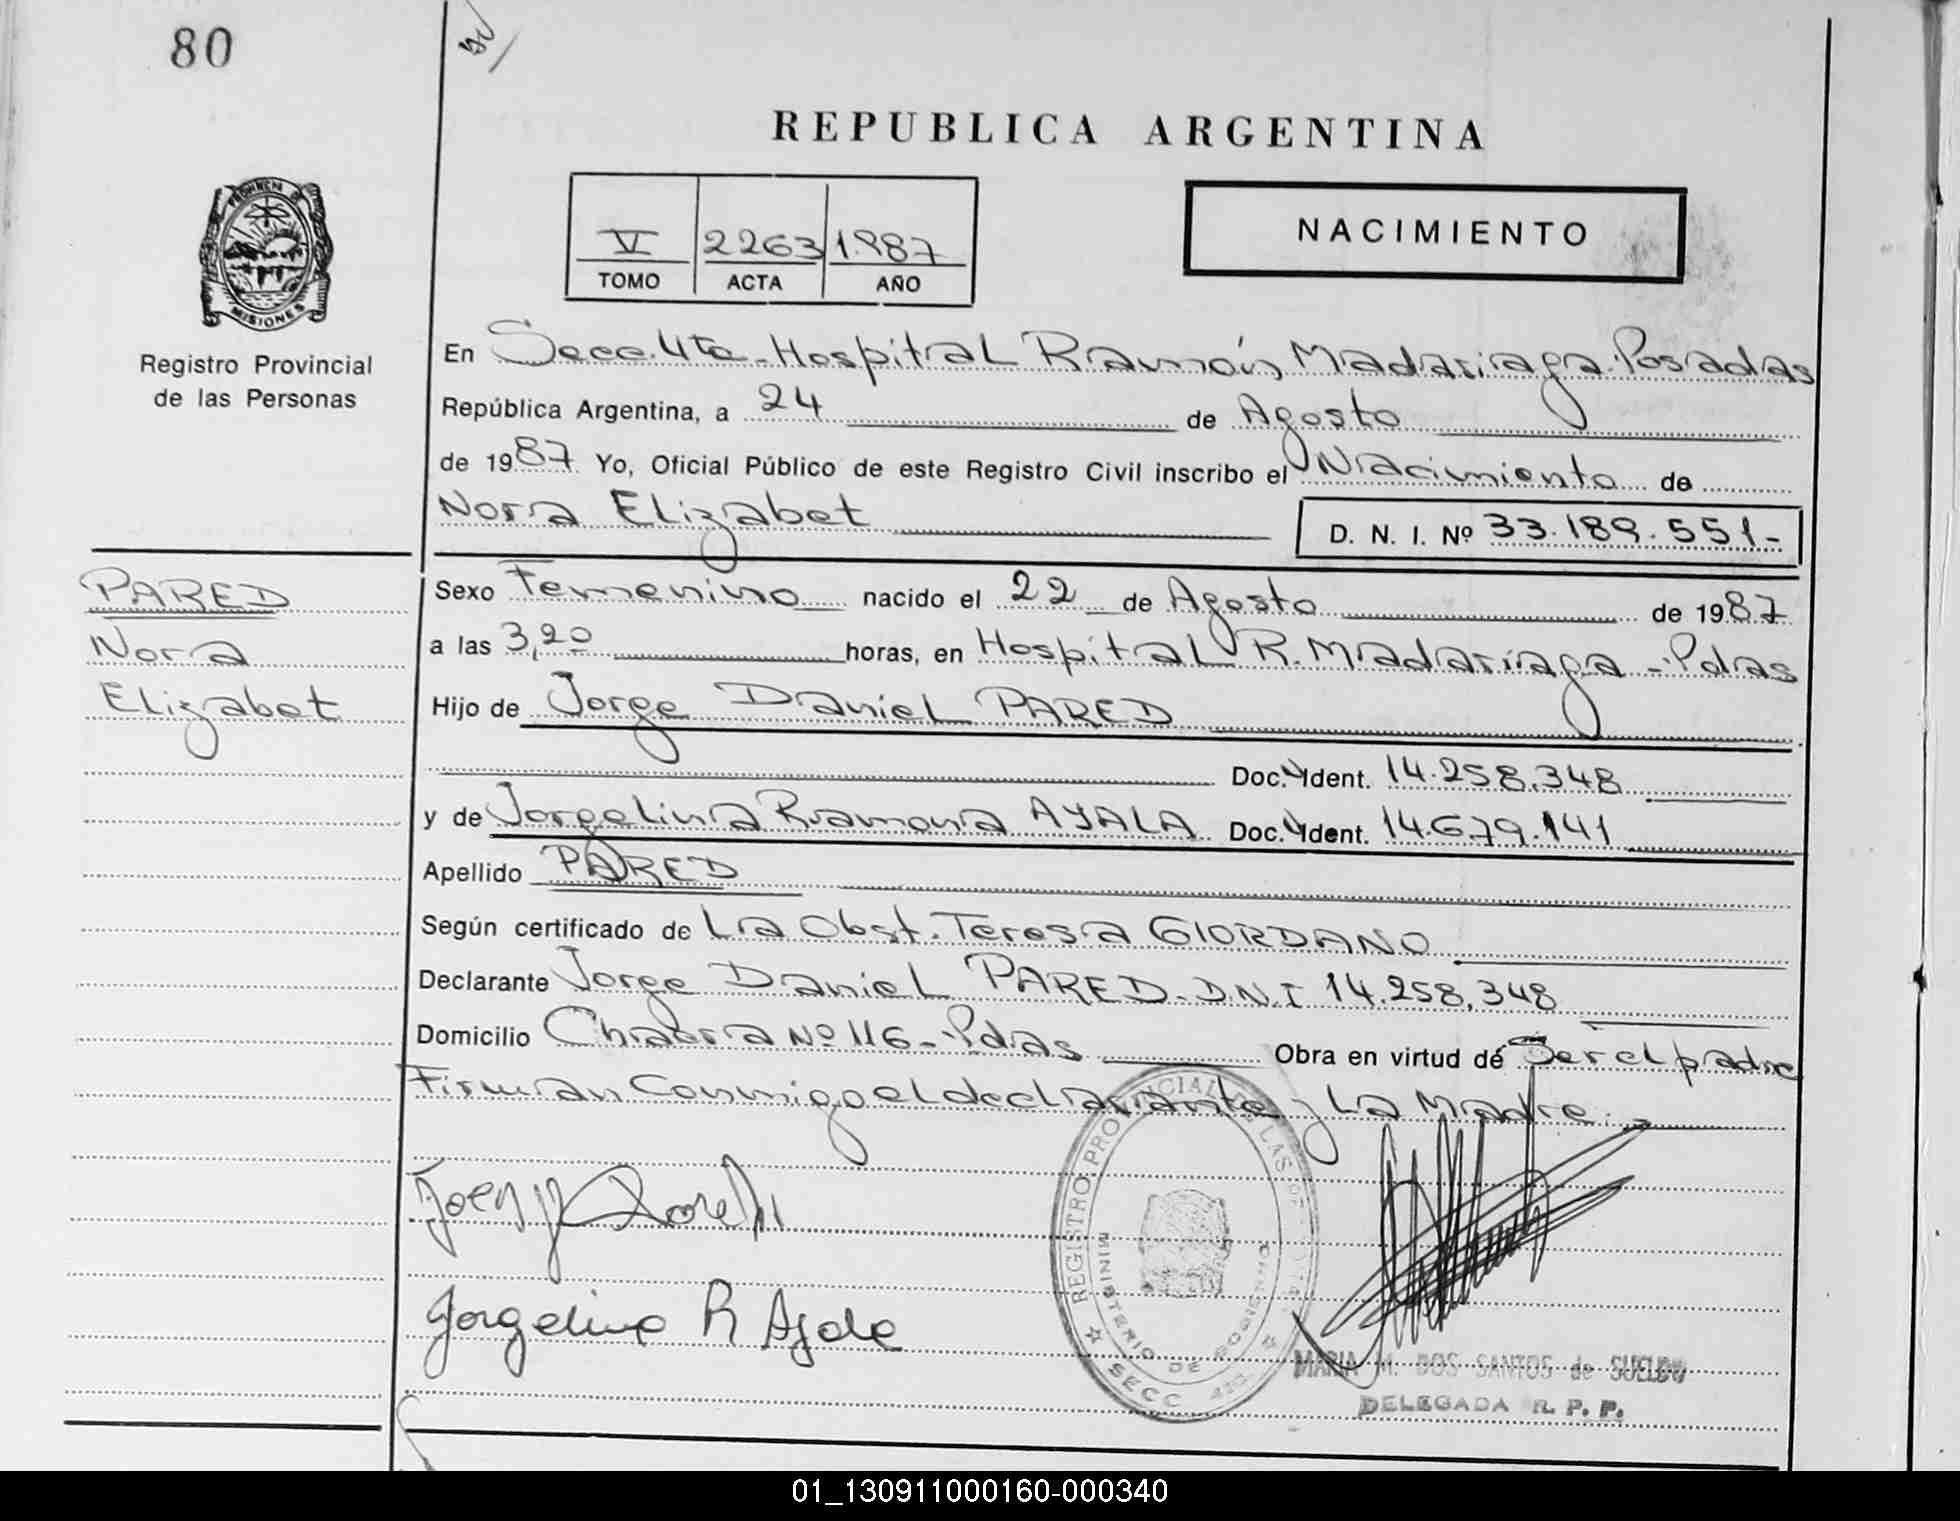 80
REPUBLICA ARGENTINA
V 2263 1.987
TOMO ACTA AÑO
NACIMIENTO
PROVINCIA DE
MISIONES
Registro Provincial
de las Personas
En Secc. 4ta - Hospital Ramón Madariaga. Posadas
República Argentina, a 24 de Agosto
de 1987 Yo, Oficial Público de este Registro Civil inscribo el Nacimiento de
Nora Elizabet D. N. I. Nº 33.189.551-
PARED
Nora
Elizabet
Sexo Femenino nacido el 22 de Agosto de 1987
a las 3,20 horas, en Hospital R. Madariaga - Pdas
Hijo de Jorge Daniel PARED
Doc. Ident. 14.258.348
y de Jorgelina Ramona AYALA Doc. Ident. 14.679.141
Apellido PARED
Según certificado de La Obst. Teresa GIORDANO
Declarante Jorge Daniel PARED. D.N.I 14.258.348
Domicilio Chacra Nº 116 - Pdas Obra en virtud de Ser el padre
Firman Conmigo el declarante y La Madre.
REGISTRO PROVINCIAL DE LAS
MINISTERIO DE
SECC
Jorgelina R Ayala
MARIA M. DOS SANTOS de SUELDO
DELEGADA R. P. P.
01_130911000160-000340